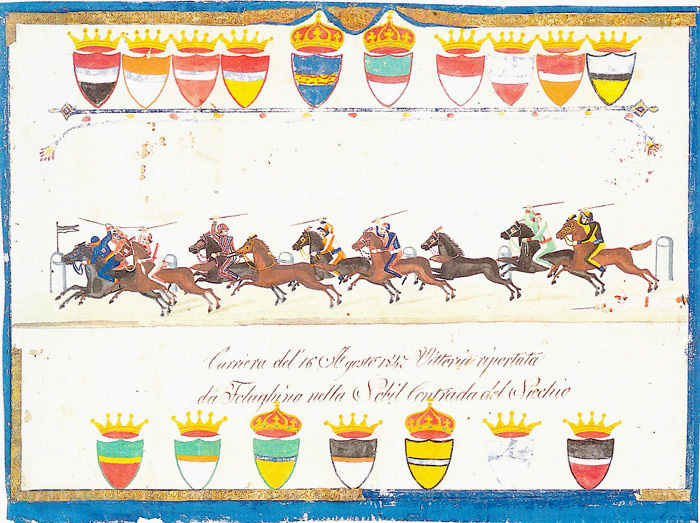 Carriera del 16 Agosto 1842 Vittoria riportata
da Folaghino nella Nobil Contrada del Nicchio